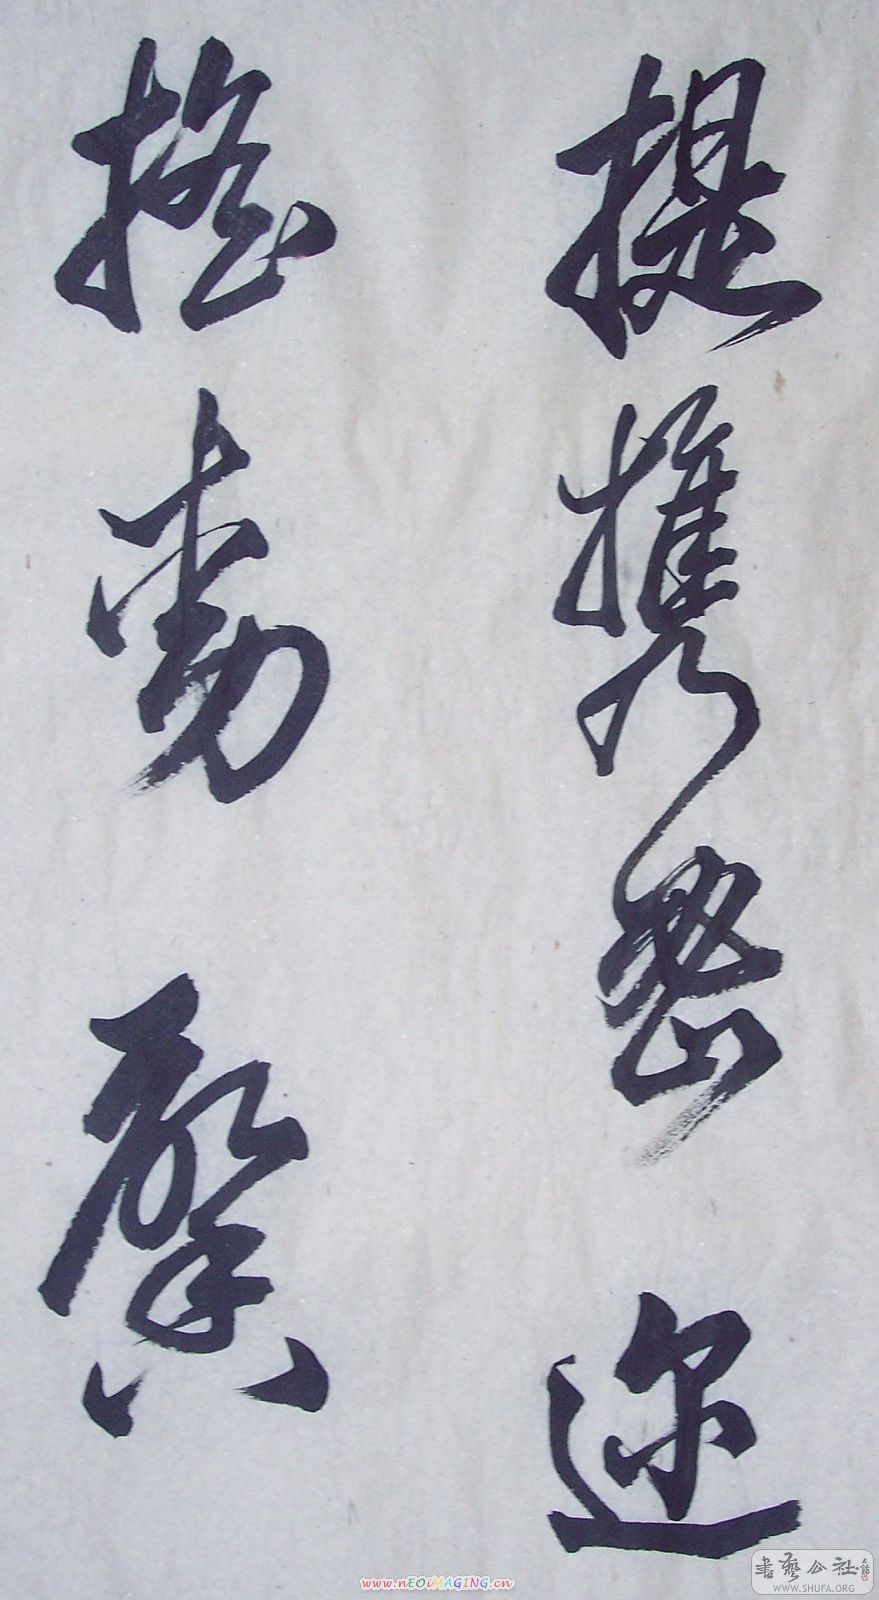 提携密迩
搖動
www.nEOiMAGING.cn
書藝公社
WWW.SHUFA.ORG